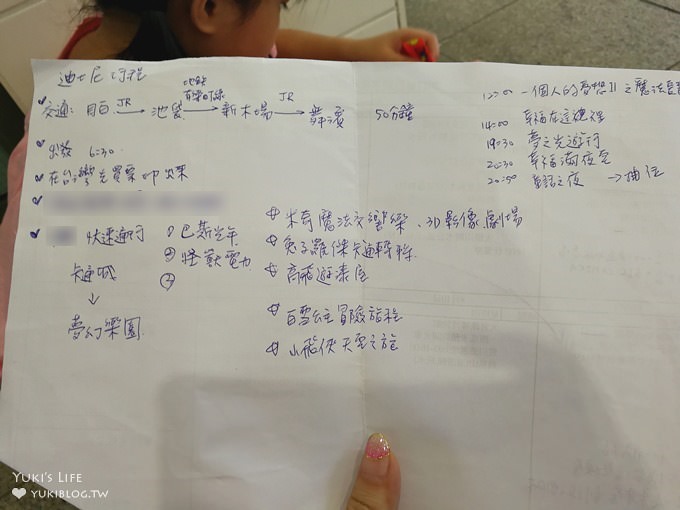 迪士尼行程
交通: 目白 JR→ 池袋 地鐵有樂町線→ 新木場 JR→ 舞濱 50分鐘
出發 6:30
在台灣先買票 印出來
快速通行 ① 巴斯光年
② 怪獸電力
③
卡通城
↓
夢幻樂園
米奇魔法交響樂、3D影像劇場
兔子羅傑卡通轉轉
高飛遊漆屋
白雪公主冒險旅程
小飛俠天空之旅
12:00 一個人的夢想II之魔法
14:00 幸福在這裡
19:30 夢之光遊行
20:30 幸福滿夜空
20:50 童話之夜 → 抽位
YUKI'S LIFE
YUKIBLOG.TW